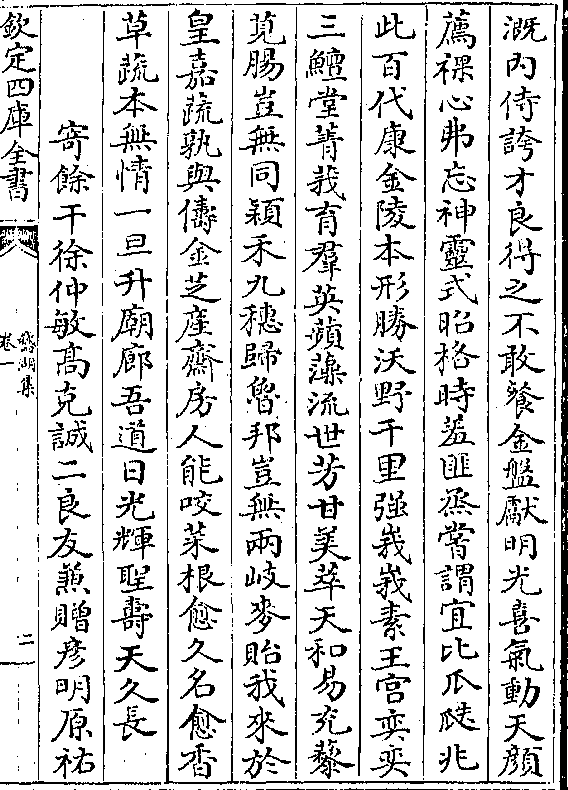 溉內侍誇才良得之不敢餐金盤獻明光喜氣動天顔
薦祼心弗忘神靈式昭格時羞匪烝嘗謂宜比瓜瓞兆
此百代康金陵本形勝沃野千里强峩峩素王宫奕奕
三鱣堂菁莪育羣英蘋藻流世芳甘美萃天和易充藜
莧腸豈無同穎禾九穗歸魯邦豈無兩岐麥貽我來於
皇嘉蔬孰與儔金芝産齋房人能咬菜根愈久名愈香
草蔬本無情一旦升廟廊吾道日光輝聖壽天久長
寄餘干徐仲敏髙克誠二良友兼贈彦明原祐
欽定四庫全書
卷一
二